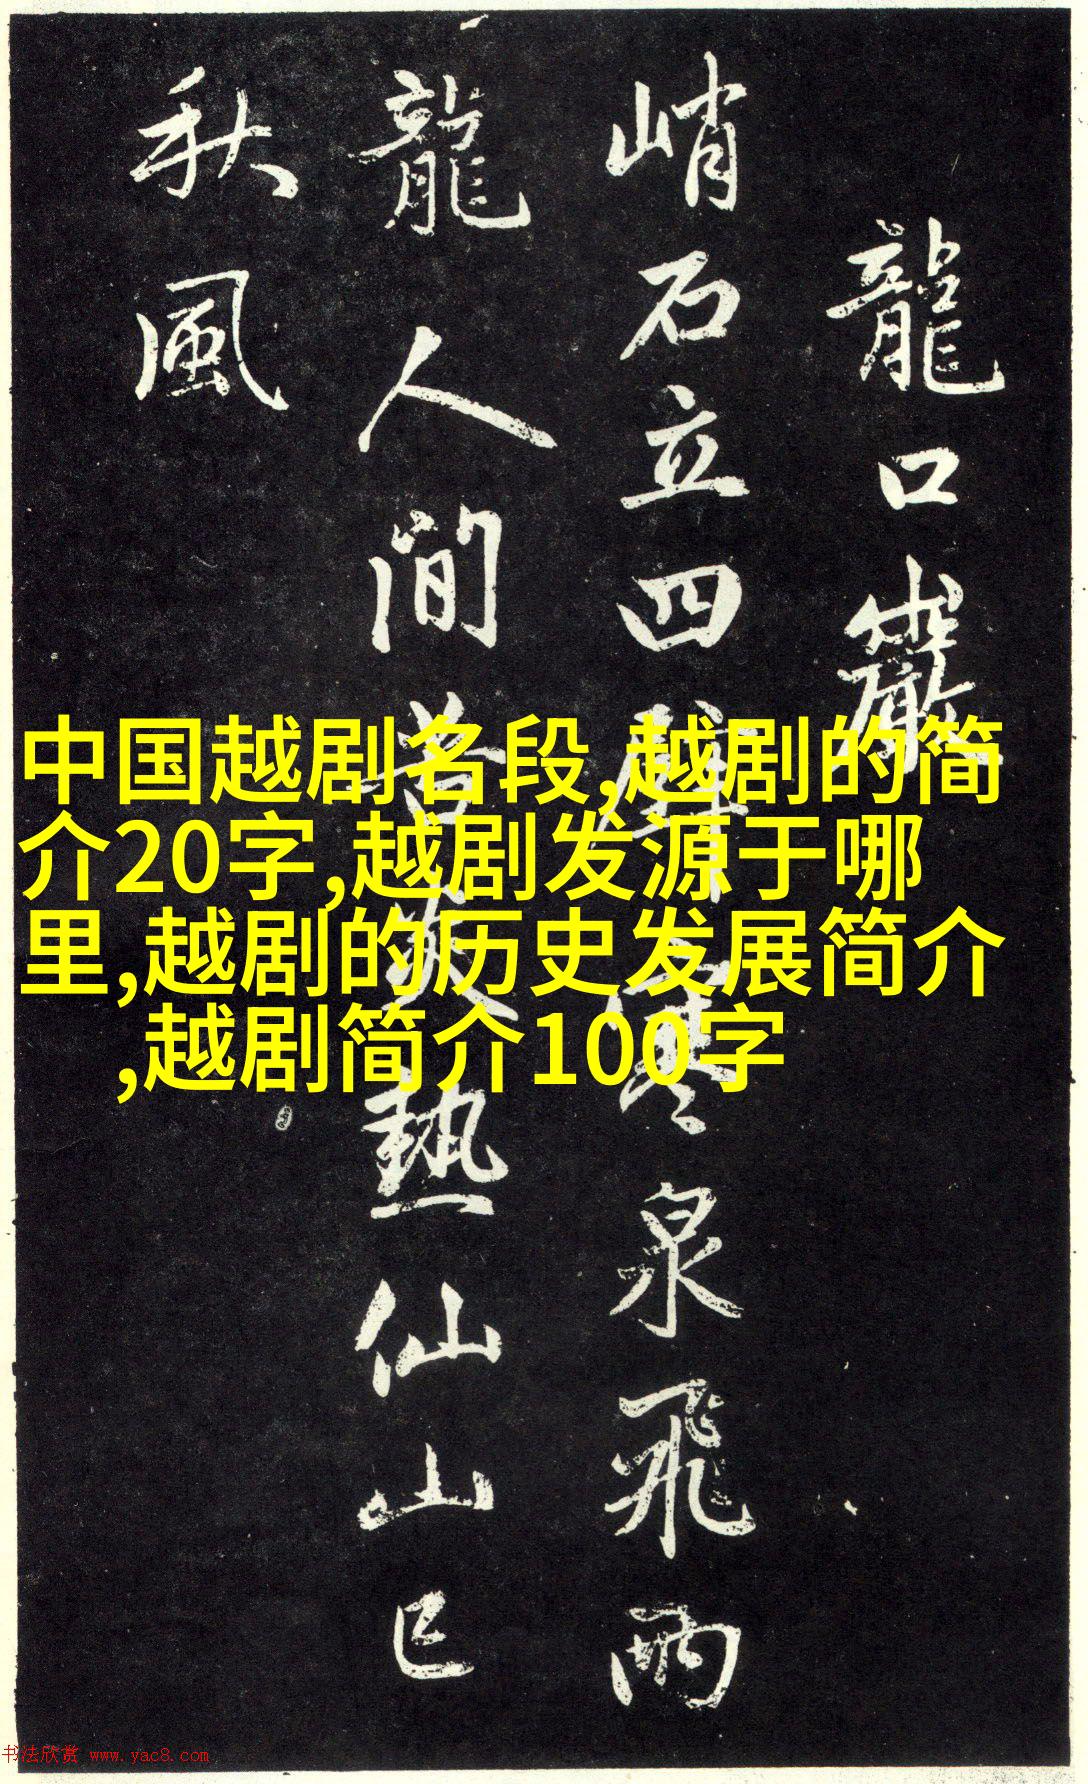 龍口巖
峭石立四壁寒泉飛兩
龍人間苦炎熱仙山已
秋風
中国越剧名段,越剧的简
介20字,越剧发源于哪
里,越剧的历史发展简介
,越剧简介100字
书法欣赏 www.yac8.com